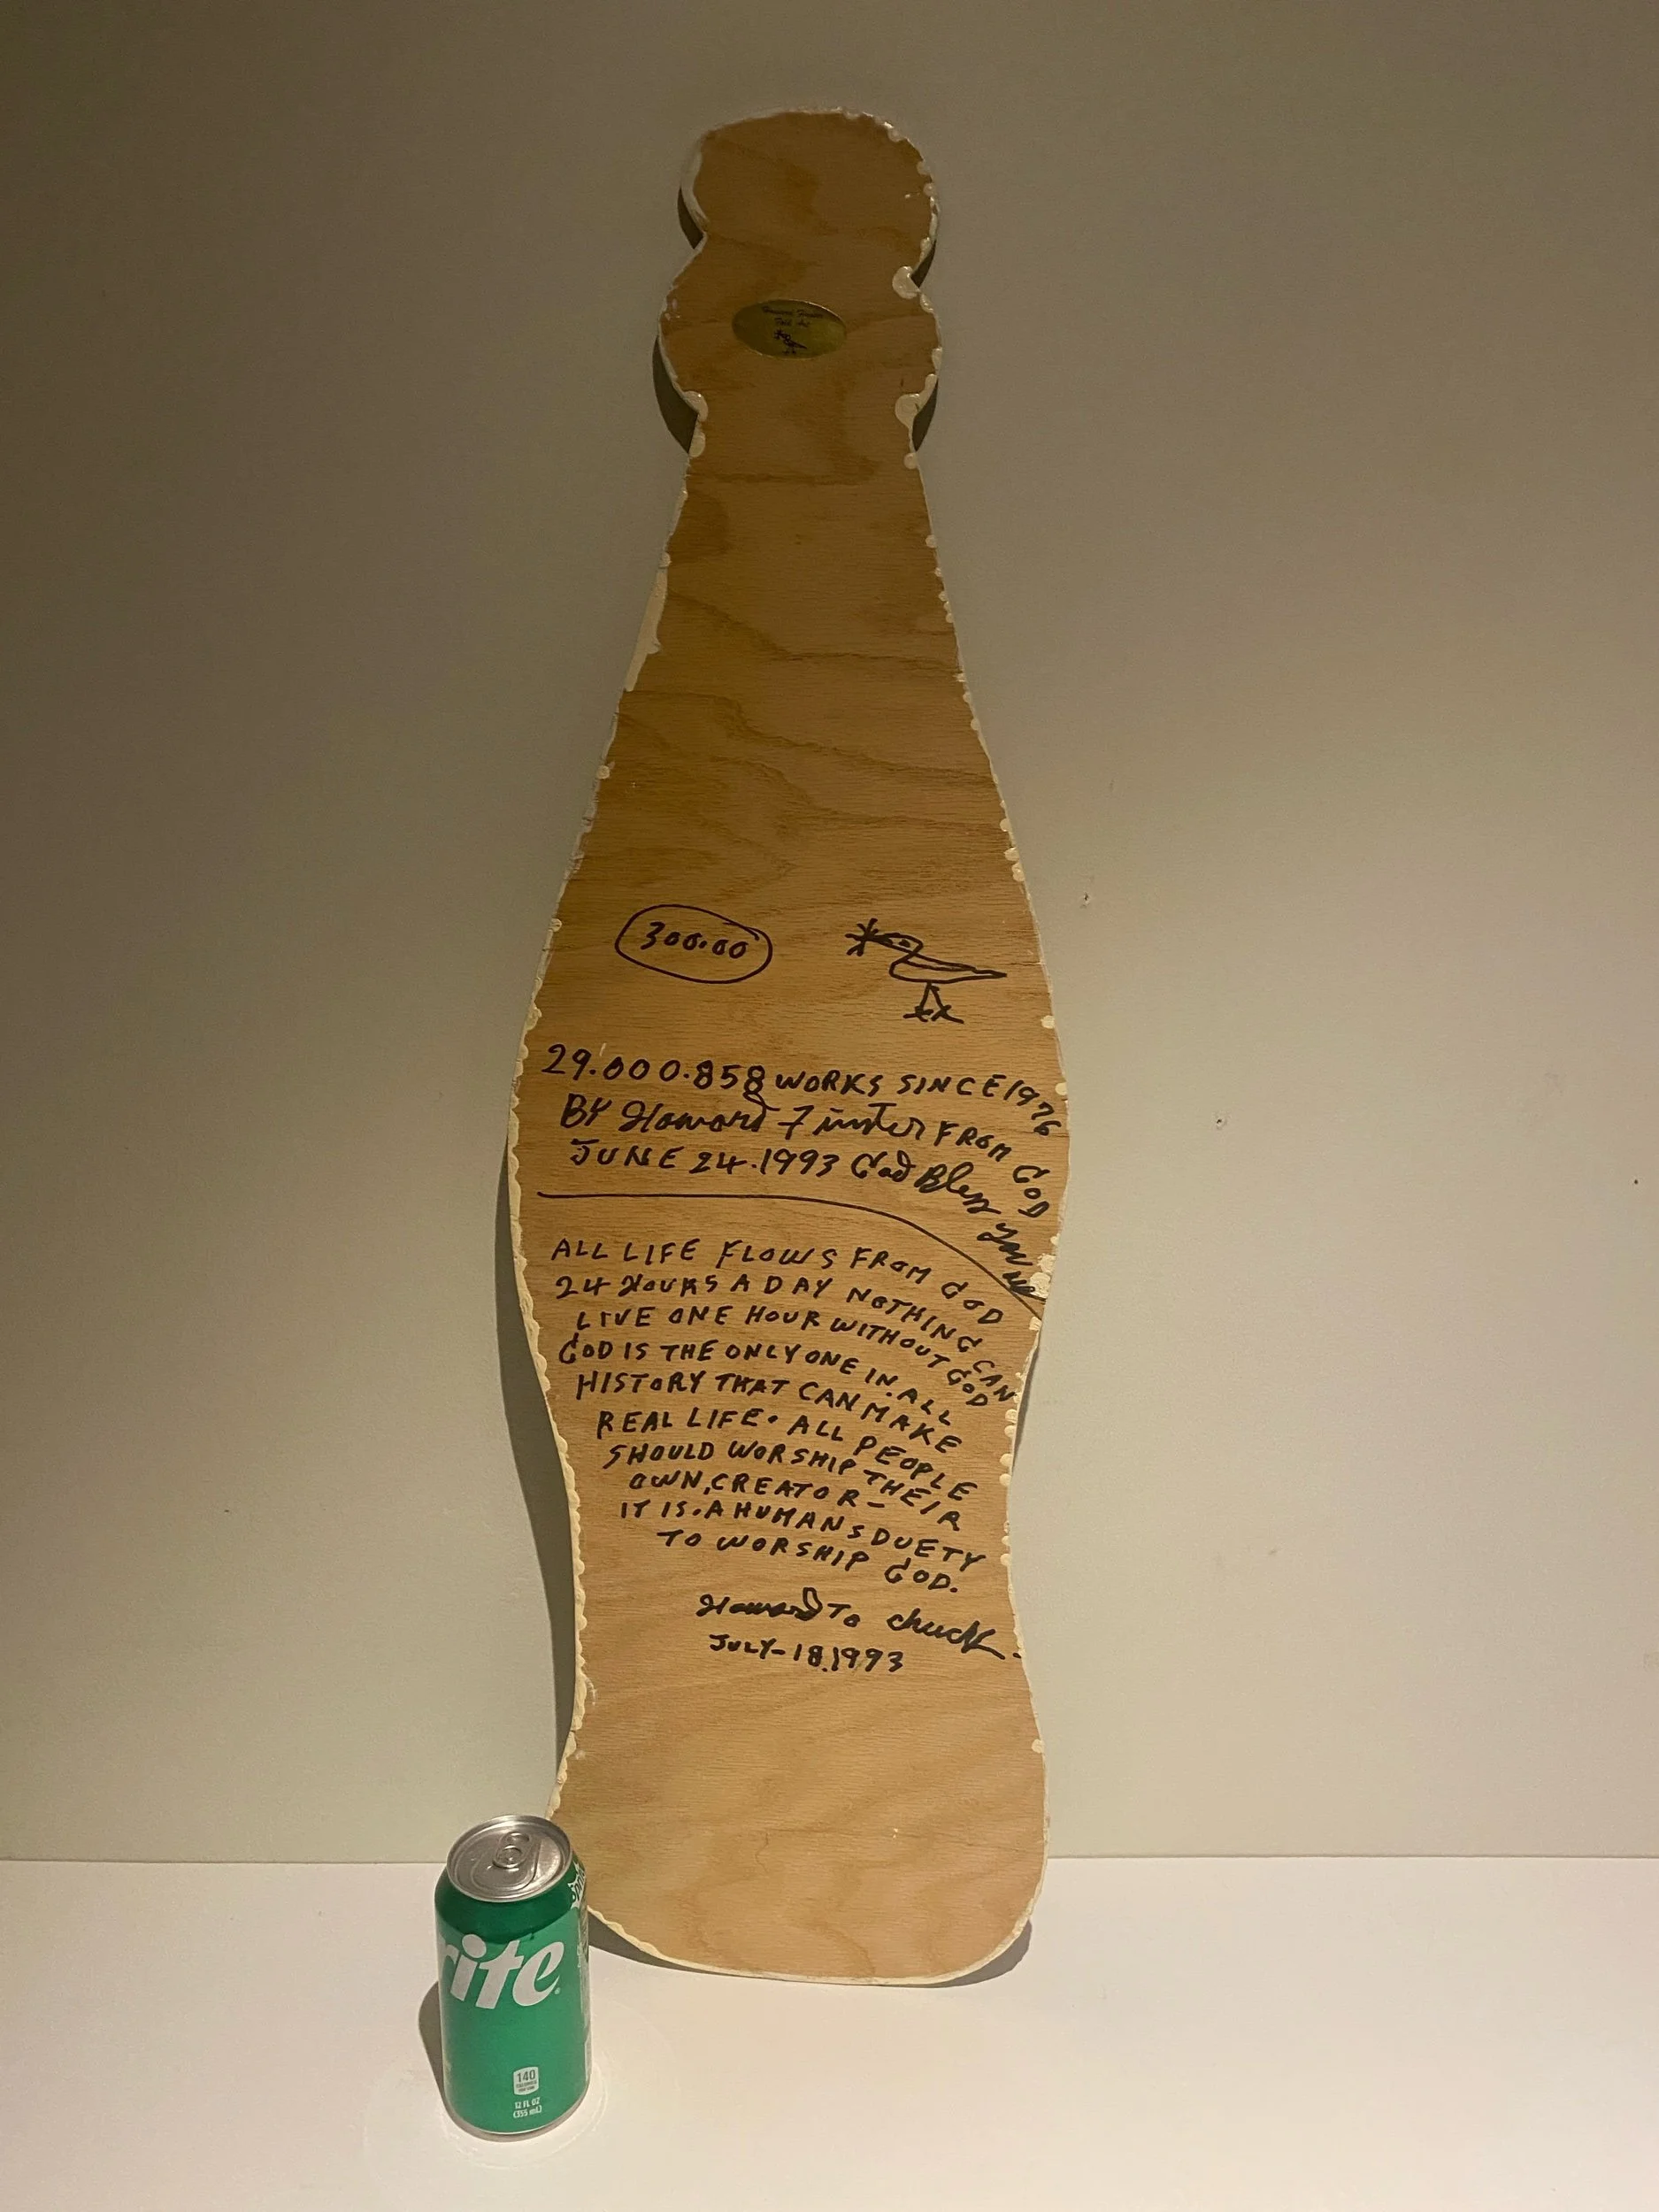 300.00
29.000.858 WORKS SINCE 1976
BY Howard Finster FROM GOD
JUNE 24.1993 God Bless you
ALL LIFE FLOWS FROM GOD
24 HOURS A DAY NOTHING CAN
LIVE ONE HOUR WITHOUT GOD
GOD IS THE ONLY ONE IN.ALL
HISTORY THAT CAN MAKE
REAL LIFE. ALL PEOPLE
SHOULD WORSHIP THEIR
OWN,CREATOR-
IT IS.A HUMANS DUETY
TO WORSHIP GOD.
Howard To chuck.
JULY-18.1993
rite
140
CALORIES
12 FL OZ
(355 mL)